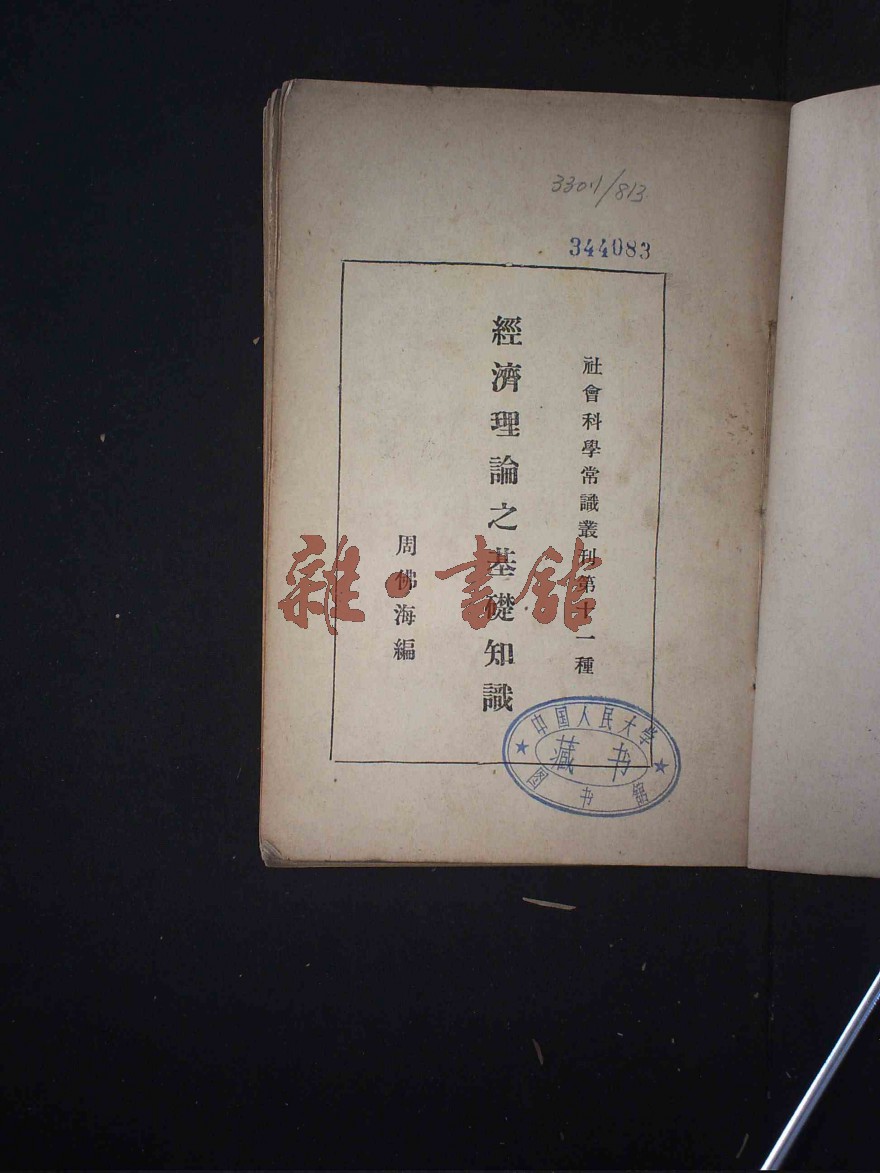 330.1/813
344083
社會科學常識叢刊第十一種
經濟理論之基礎知識
周佛海編
雜·書館
中国人民大学
藏书
图书馆